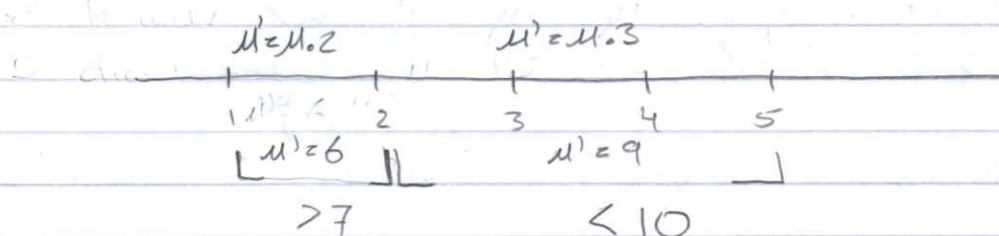 μ'=μ.2 μ'=μ.3
1 2 3 4 5
μ'=6 μ'=9
>7 <10